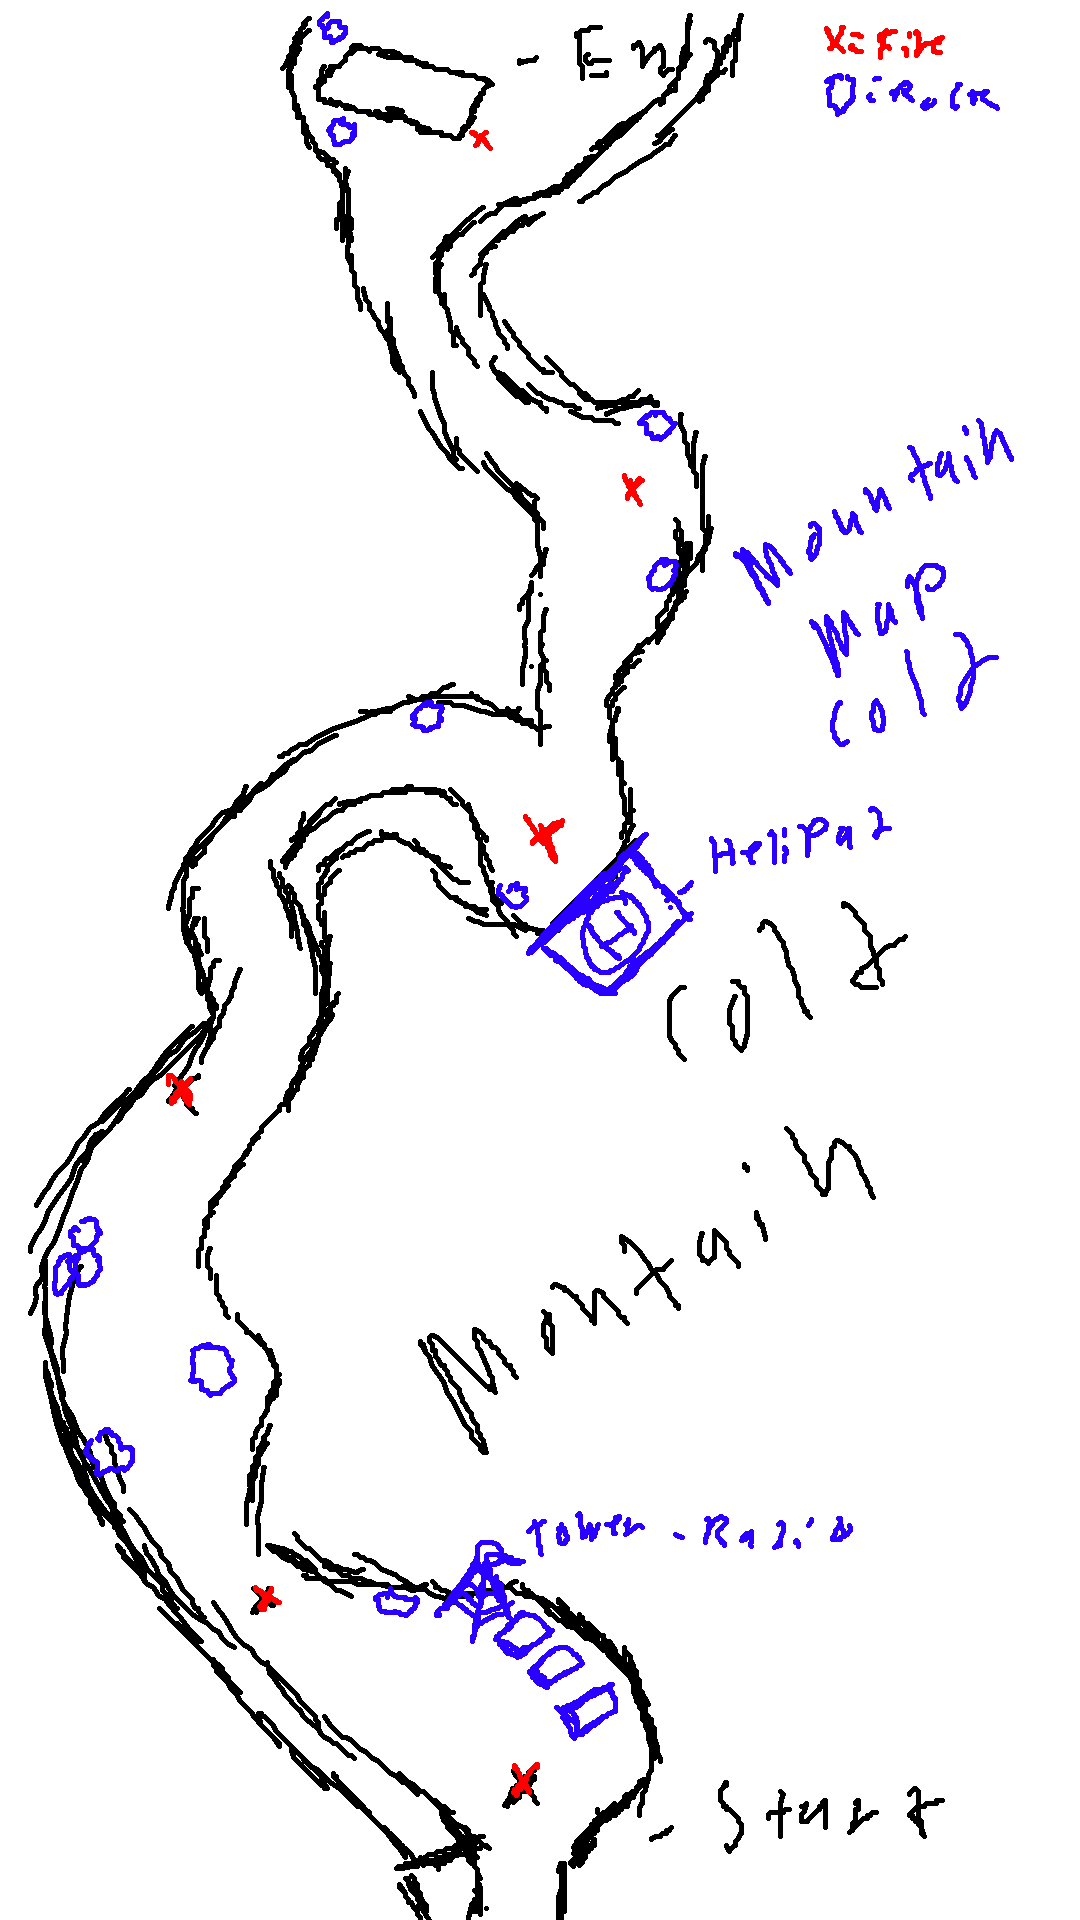 - End
X=Fire
O=Rock
Mountain
Map
Cold
Helipad
H
Cold
Montain
Tower - Radio
- Start